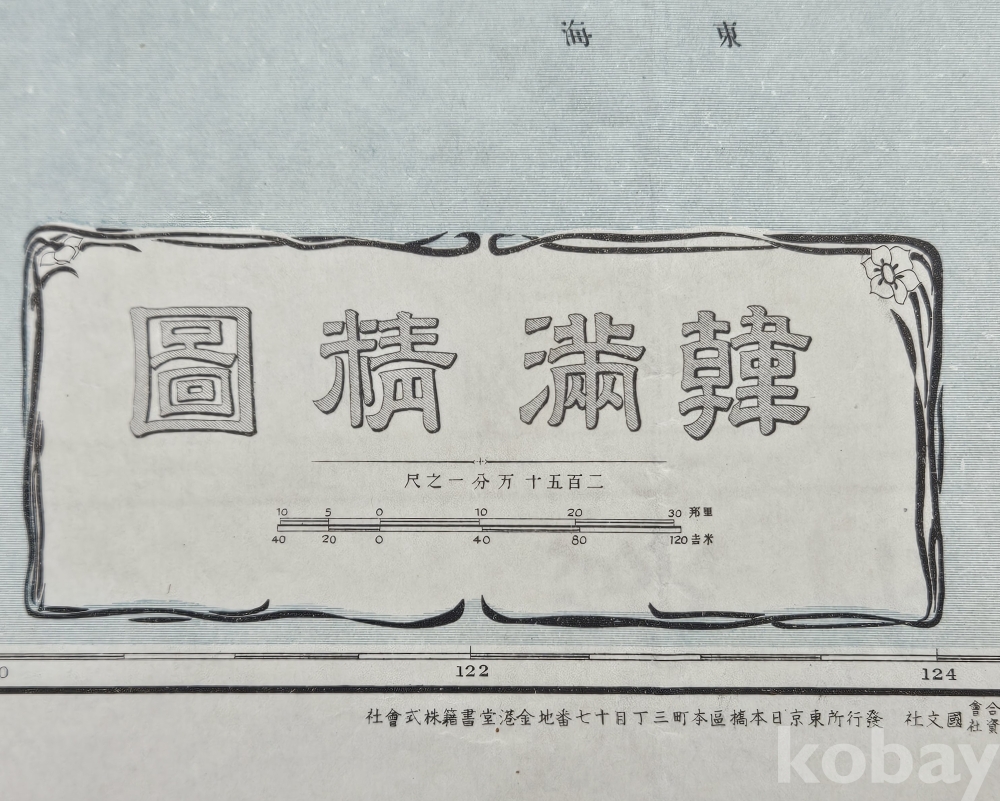 東海
韓滿精圖
二百五十万分一之尺
10 5 0 10 20 30 邦里
40 20 0 40 80 120 吉米
122 124
合資會社國文社 發行所東京日本橋區本町三丁目十七番地金港堂書籍株式會社
kobay